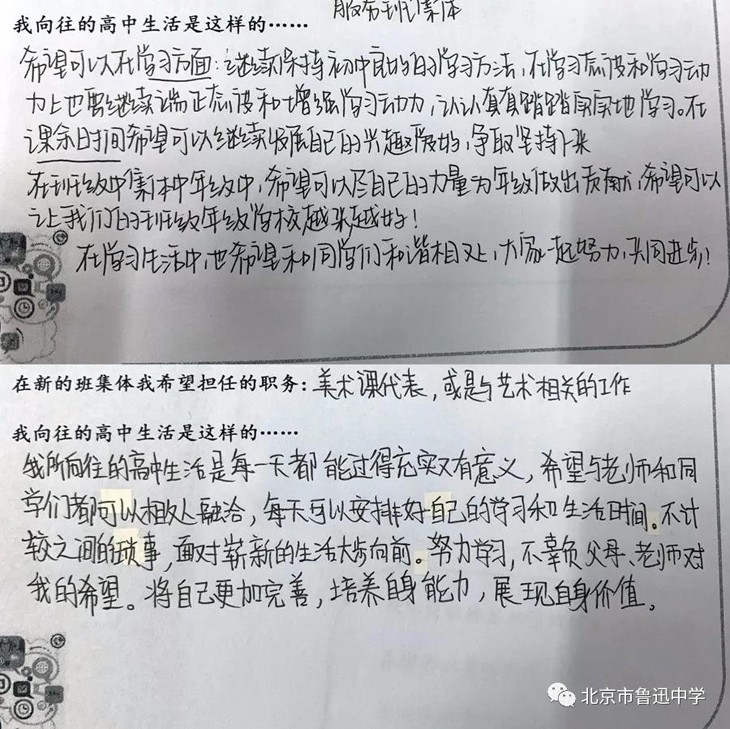 服务班集体
我向往的高中生活是这样的……
希望可以在学习方面：继续保持初中良好的学习方法，在学习态度和学习动
力上也要继续端正态度和增强学习动力，认认真真踏踏实实地学习。在
课余时间希望可以继续发展自己的兴趣爱好，争取坚持下来
在班级中集体中年级中，希望可以尽自己的力量为年级做出贡献，希望可以
让我们的班级年级学校越来越好！
在学习生活中，也希望和同学们和谐相处，大家一起努力，共同进步！
在新的班集体我希望担任的职务：美术课代表，或是与艺术相关的工作
我向往的高中生活是这样的……
我所向往的高中生活是每一天都能过得充实又有意义，希望与老师和同
学们都可以相处融洽，每天可以安排好自己的学习和生活时间。不计
较之间的琐事，面对崭新的生活大步向前。努力学习，不辜负父母、老师对
我的希望。将自己更加完善，培养自身能力，展现自身价值。
北京市鲁迅中学